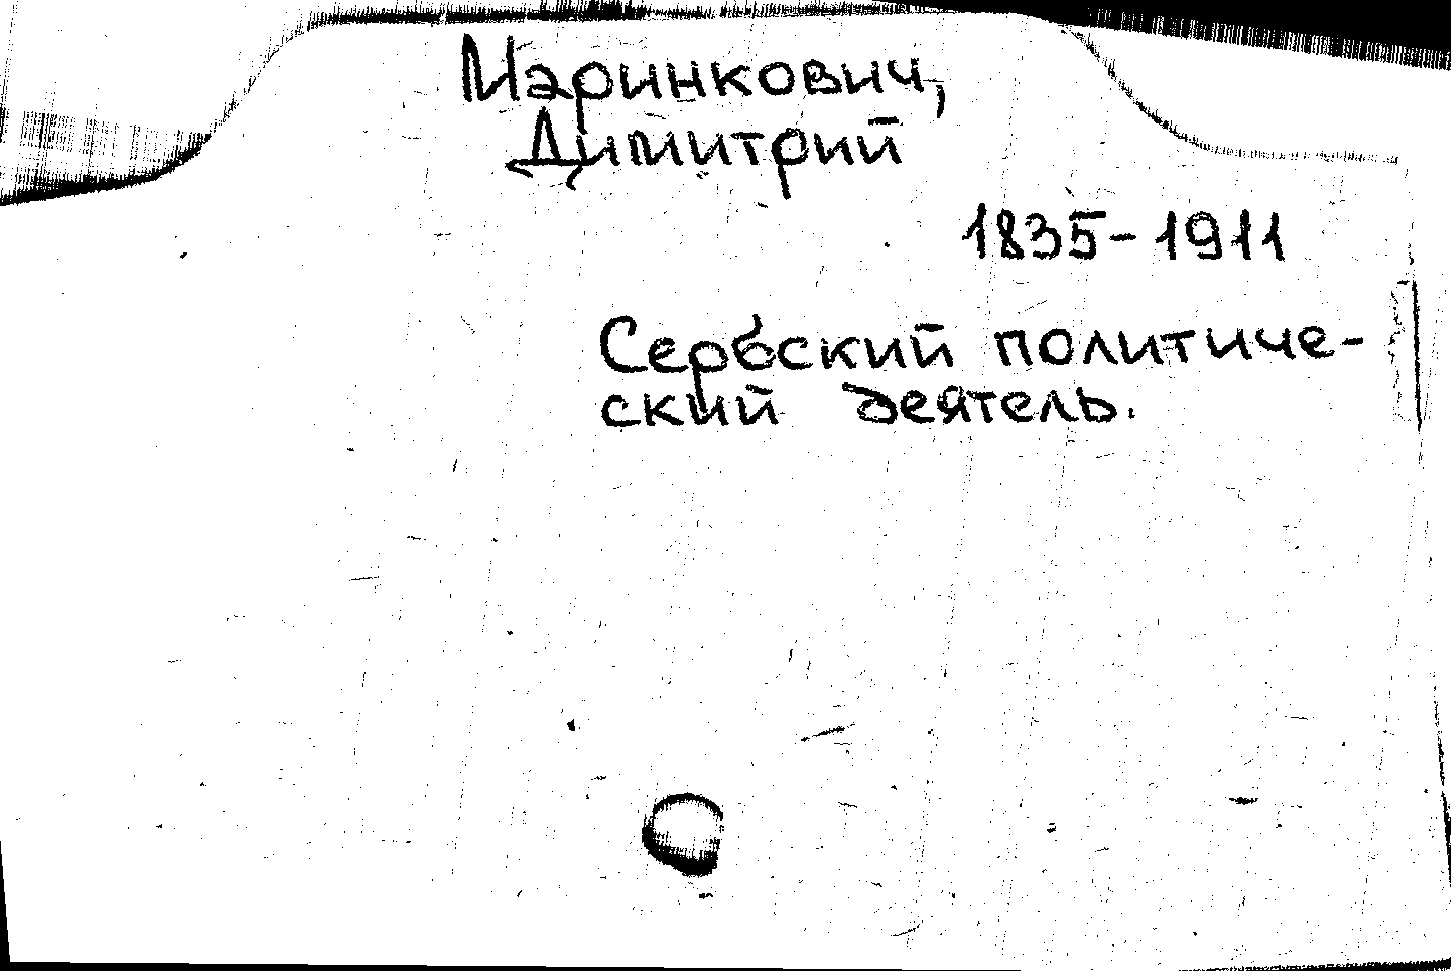 Маринкович,
Димитрий
1835-1911
Сербский политиче-
ский деятель.